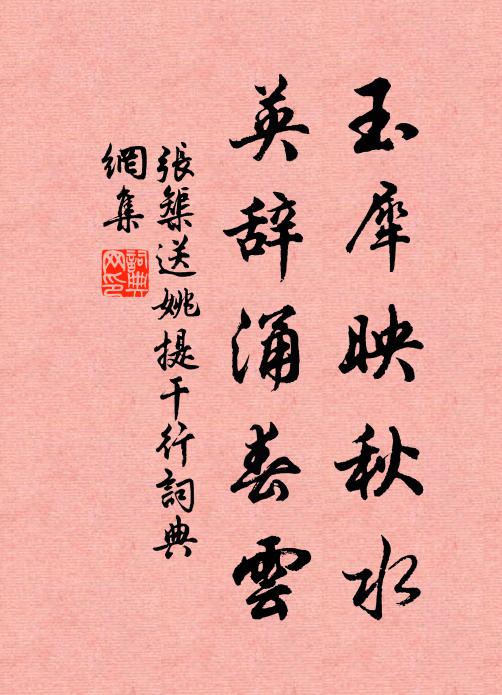 玉犀映秋水
英辞涌春雲
張榘送姚提干行詞典
網集
詞典網印